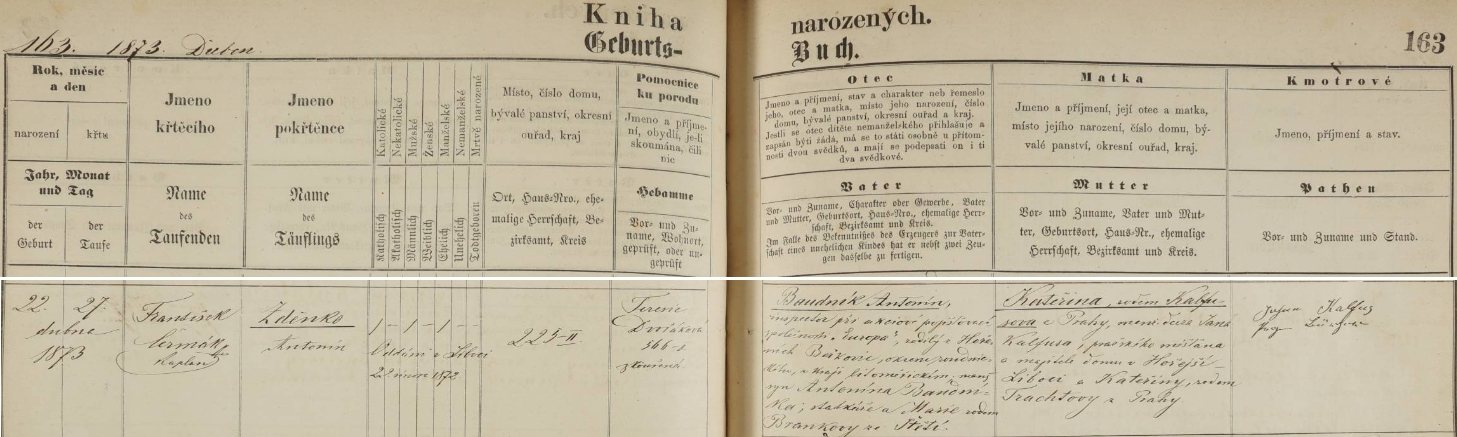 163. 1873 Duben.
Kniha
Geburts-
narozených.
Buch.
163
Rok, měsíc
a den
narození křtu
Jahr, Monat
und Tag
der
Geburt
der
Taufe
Jmeno
křtěcího
Name
des
Taufenden
Jmeno
pokřtěnce
Name
des
Täuflings
Katolické
Nekatolické
Mužské
Ženské
Manželské
Nemanželské
Mrtvě narozené
Katholisch
Akatholisch
Männlich
Weiblich
Ehelich
Unehelich
Todtgeboren
Místo, číslo domu,
bývalé panství, okresní
ouřad, kraj
Ort, Haus-Nro., ehe-
malige Herrschaft, Be-
zirksamt, Kreis
Pomocnice
ku porodu
Jmeno a příjme-
ní, obydlí, je-li
skoumána, čili
nic
Hebamme
Vor- und Zu-
name, Wohnort,
geprüft, oder un-
geprüft
Otec
Jmeno a příjmení, stav a charakter neb řemeslo
jeho, otec a matka, místo jeho narození, číslo
domu, bývalé panství, okresní ouřad a kraj.
Jestli se otec dítěte nemanželského přihlašuje a
zapsán býti žádá, má se to státi osobně u přítom-
nosti dvou svědků, a mají se podepsati on i ti
dva svědkové.
Vater
Vor- und Zuname, Charakter oder Gewerbe, Vater
und Mutter, Geburtsort, Haus-Nro., ehemalige Herr-
schaft, Bezirksamt und Kreis.
Im Falle des Bekenntnißes des Erzeugers zur Vater-
schaft eines unehelichen Kindes hat er nebst zwei Zeu-
gen dasselbe zu fertigen.
Matka
Jmeno a příjmení, její otec a matka,
místo jejího narození, číslo domu, bý-
valé panství, okresní ouřad, kraj.
Mutter
Vor- und Zuname, Vater und Mut-
ter, Geburtsort, Haus-Nr., ehemalige
Herrschaft, Bezirksamt und Kreis.
Kmotrové
Jmeno, příjmení a stav.
Pathen
Vor- und Zuname und Stand.
22. 27.
dubna
1873
František
Čermák
kaplan
Zdenko
Antonín
/ – / – / – –
Oddáni v Liboci
22 února 1872
225-II
Terezie
Dvořáková
366-I
zkoušená
Baudník Antonín,
inspektor při akciové pojišťovací
společnosti „Europa", rodilý z Hoře-
ních Beřkovic, okresu roudnic-
kého, v kraji litoměřickém, manž.
syn Antonína Baudní-
ka, statkáře a Marie rodem
Brankovy ze Stětí.
Kateřina, rodem Kalfu-
sova z Prahy, manž. dcera Jana
Kalfusa, pražského měšťana
a majitele domu v Hořejší
Liboci a Kateřiny, rodem
Trachtovy z Prahy.
Johan Kalfuz